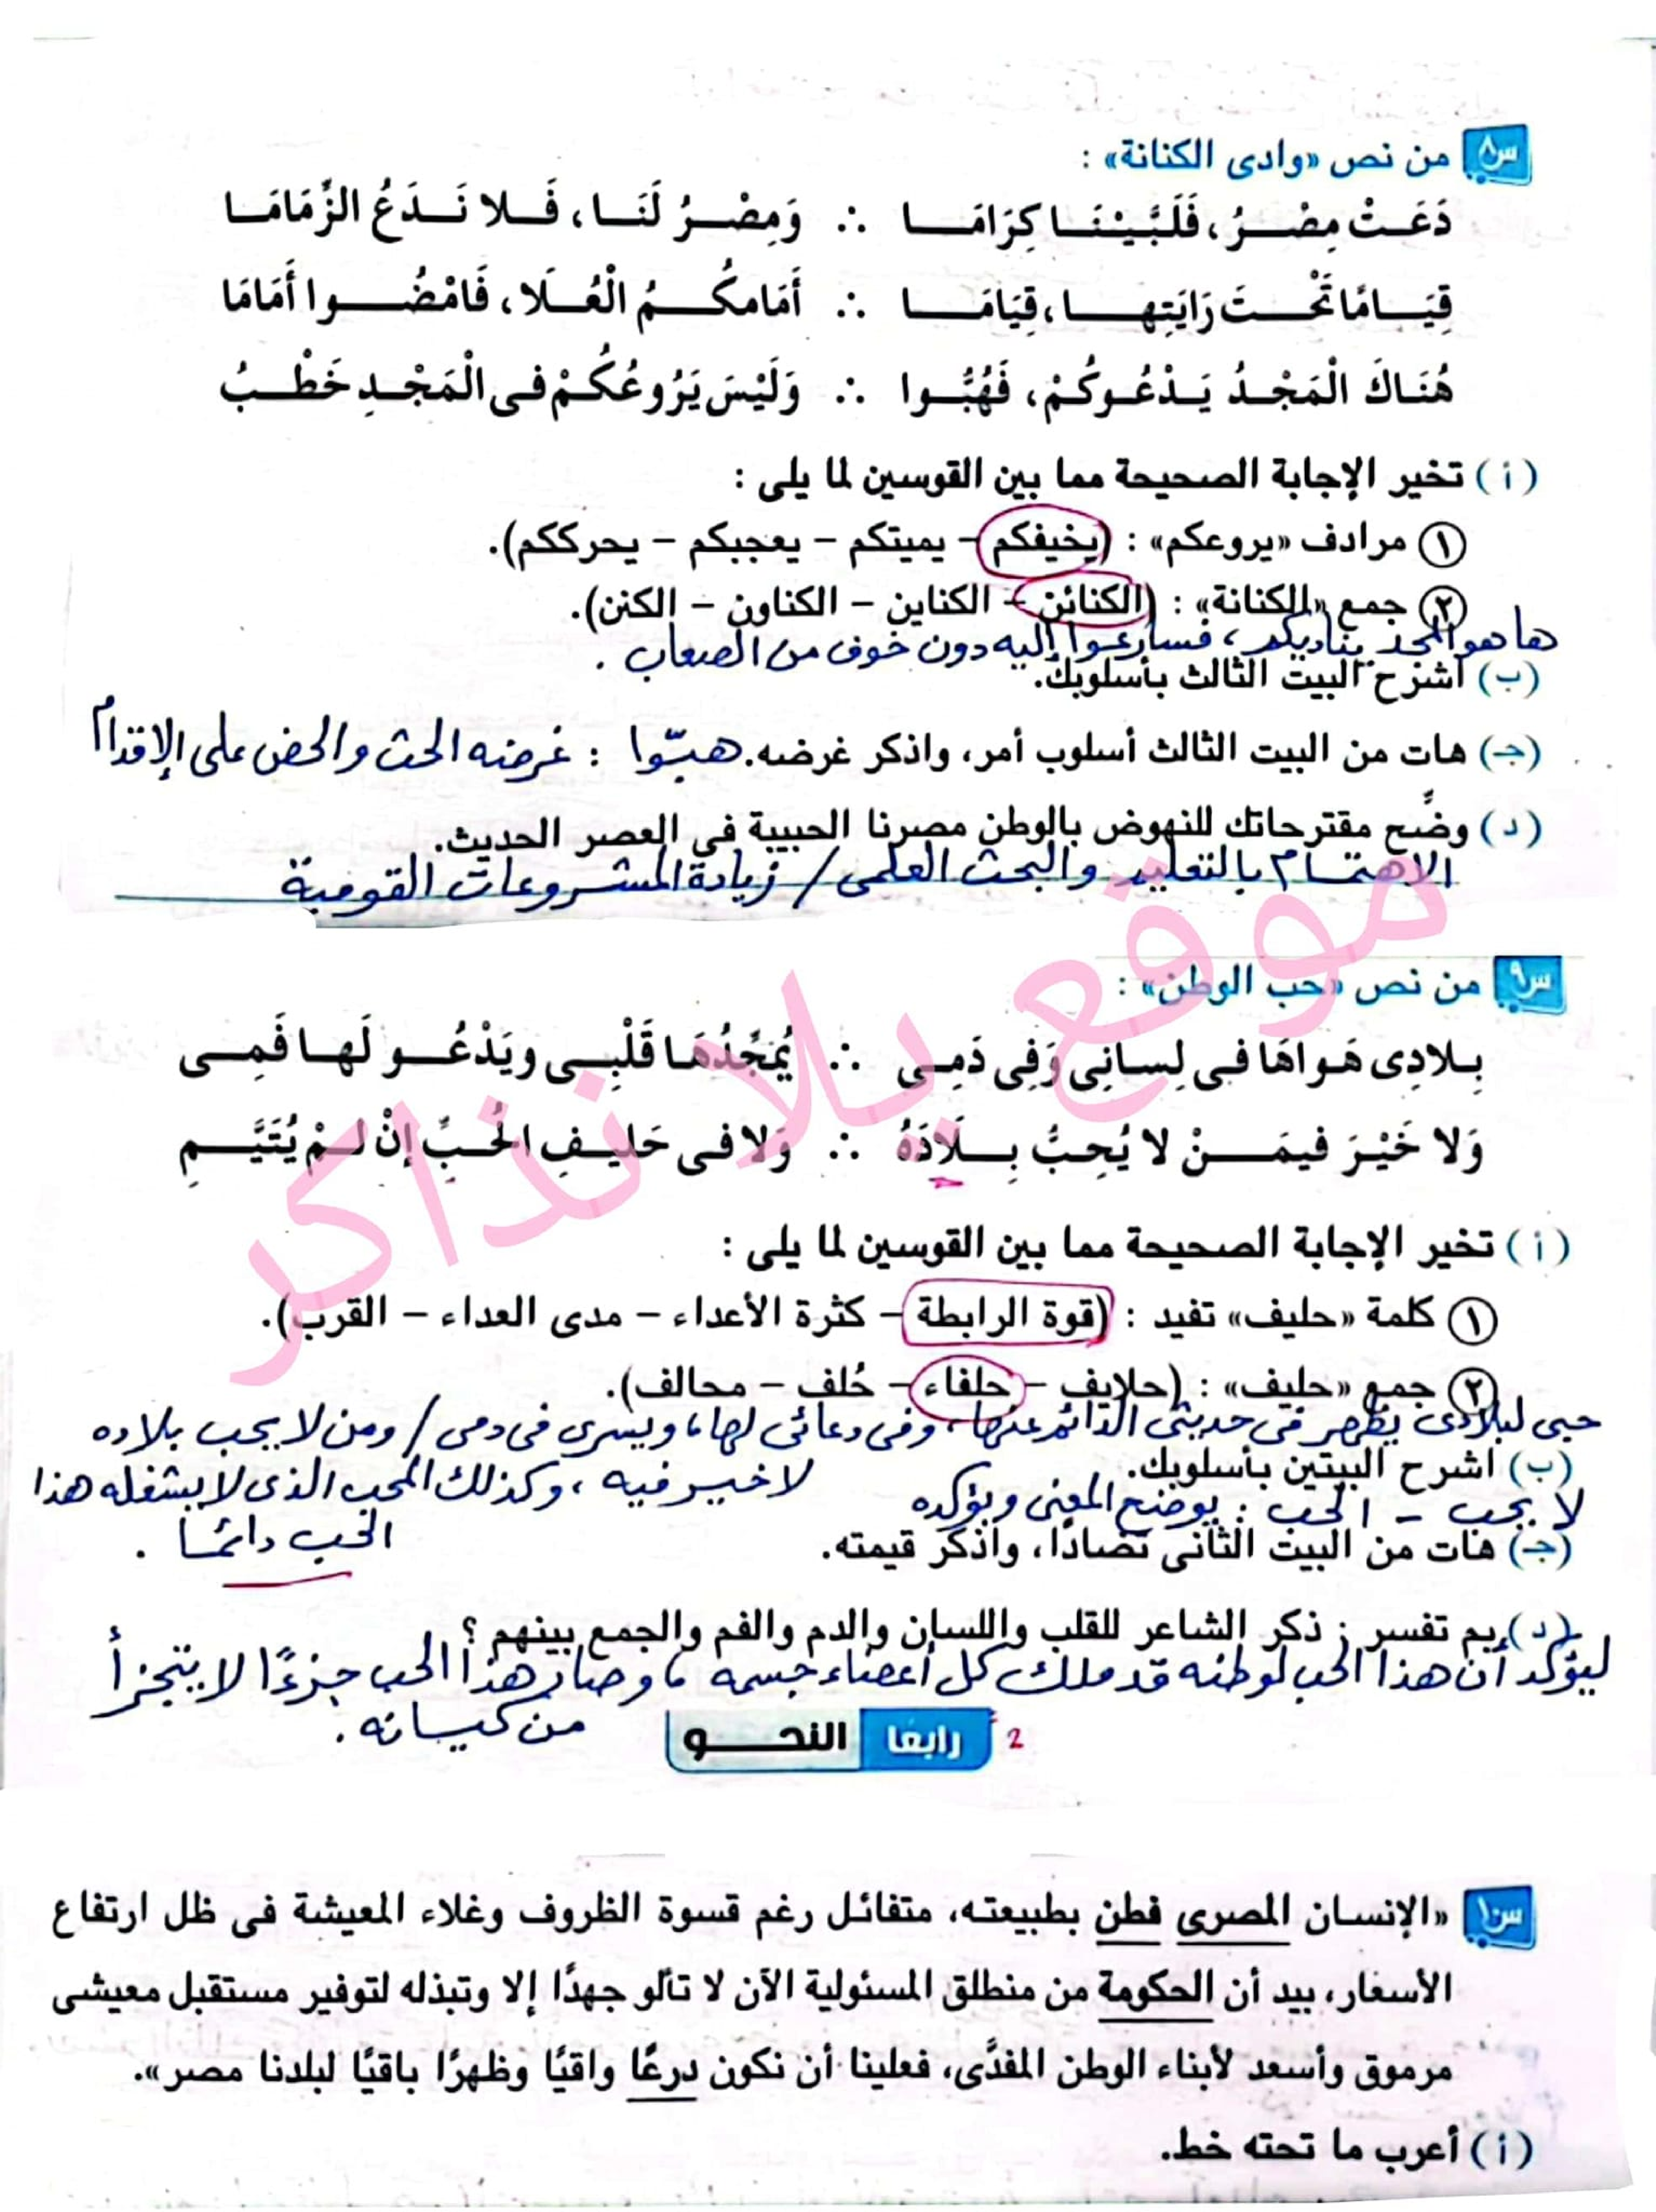 س٨ من نص «وادى الكنانة» :
دَعَتْ مِصْرُ، فَلَبَّيْنَا كِرَامَا ∴ وَمِصْرُ لَنَا، فَلا نَدَعُ الزِّمَامَا
قِيَامًا تَحْتَ رَايَتِها، قِيَامَا ∴ أَمَامكُمُ الْعُلَا، فَامْضُوا أَمَامَا
هُنَاكَ الْمَجْدُ يَدْعُوكُمْ، فَهُبُّوا ∴ وَلَيْسَ يَرُوعُكُمْ فى الْمَجْدِ خَطْبُ
(أ) تخير الإجابة الصحيحة مما بين القوسين لما يلى :
١ مرادف «يروعكم» : (يخيفكم – يميتكم – يعجبكم – يحرككم).
٢ جمع «الكنانة» : (الكنائن – الكناين – الكناون – الكنن).
ها هو المجد يناديكم، فسارعوا إليه دون خوف من الصعاب .
(ب) اشرح البيت الثالث بأسلوبك.
(جـ) هات من البيت الثالث أسلوب أمر، واذكر غرضه. هبّوا : غرضه الحث والحض على الإقدام
(د) وضِّح مقترحاتك للنهوض بالوطن مصرنا الحبيبة فى العصر الحديث.
الاهتمام بالتعليم والبحث العلمى / زيادة المشروعات القومية
موقع يلا نذاكر
س٩ من نص «حب الوطن» :
بِلادِى هَواهَا فى لِسانِى وَفِى دَمِى ∴ يُمَجِّدُهَا قَلْبِى ويَدْعُو لَها فَمِى
وَلا خَيْرَ فيمَنْ لا يُحِبُّ بِلَادَهُ ∴ وَلا فى حَليفِ الحُبِّ إنْ لمْ يُتَيَّمِ
(أ) تخير الإجابة الصحيحة مما بين القوسين لما يلى :
١ كلمة «حليف» تفيد : (قوة الرابطة – كثرة الأعداء – مدى العداء – القرب).
٢ جمع «حليف» : (حلايف – حلفاء – حُلف – محالف).
حبى لبلادى يظهر فى حديثى الدائم عنها، وفى دعائى لها، ويسرى فى دمى / ومن لا يحب بلاده
(ب) اشرح البيتين بأسلوبك.
لا خير فيه ، وكذلك المحب الذى لا يشغله هذا
الحب دائمًا .
لا يحب – الحب : يوضح المعنى ويؤكده
(جـ) هات من البيت الثانى تضادًا، واذكر قيمته.
(د) بم تفسر : ذكر الشاعر للقلب واللسان والدم والفم والجمع بينهم ؟
ليؤكد أن هذا الحب لوطنه قد ملك كل أعضاء جسمه، وصار هذا الحب جزءًا لا يتجزأ
من كيانه .
رابعًا النحو 2
س١٠ «الإنسان المصرى فطن بطبيعته، متفائل رغم قسوة الظروف وغلاء المعيشة فى ظل ارتفاع
الأسعار، بيد أن الحكومة من منطلق المسئولية الآن لا تألو جهدًا إلا وتبذله لتوفير مستقبل معيشى
مرموق وأسعد لأبناء الوطن المفدَّى، فعلينا أن نكون درعًا واقيًا وظهرًا باقيًا لبلدنا مصر».
(أ) أعرب ما تحته خط.